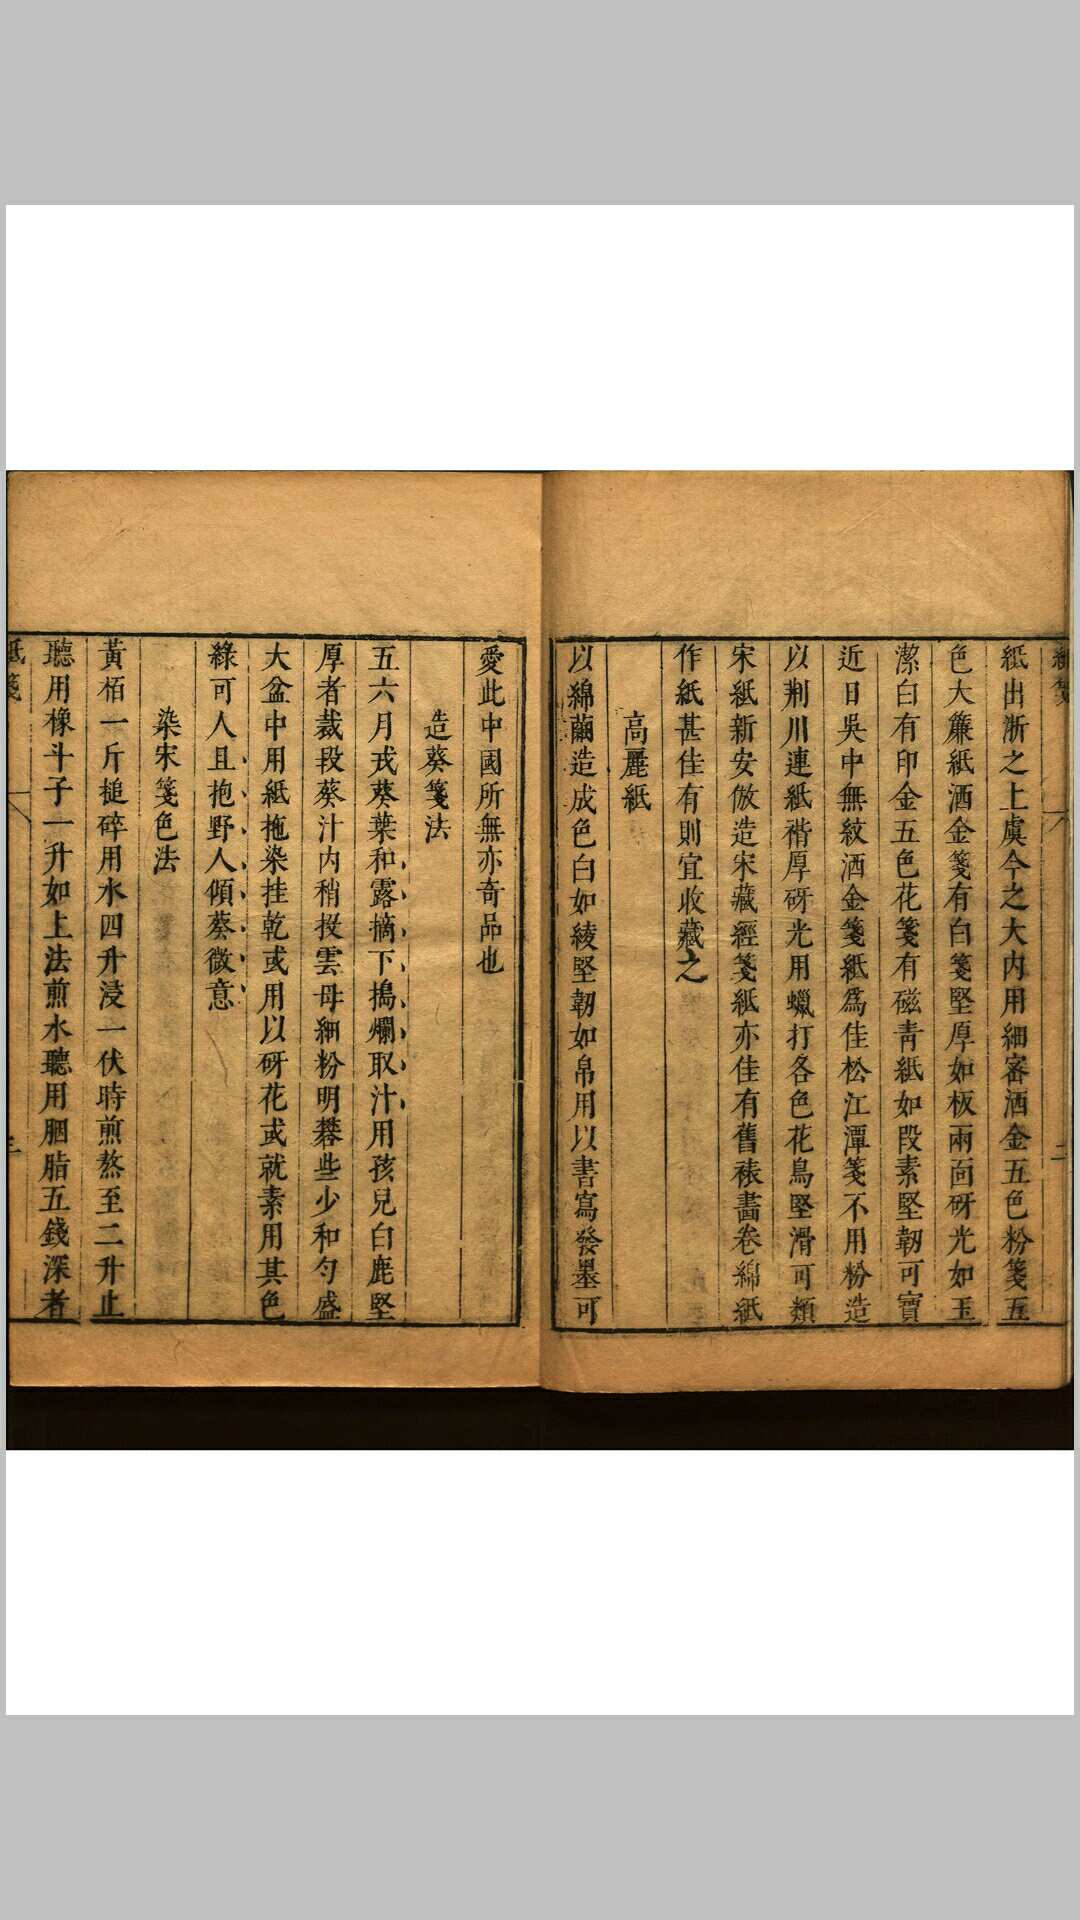 紙箋
二
紙出浙之上虞今之大內用細密洒金五色粉箋五
色大簾紙洒金箋有白箋堅厚如板兩面砑光如玉
潔白有印金五色花箋有磁青紙如段素堅韌可寶
近日吳中無紋洒金箋紙爲佳松江潭箋不用粉造
以荆川連紙褙厚砑光用蠟打各色花鳥堅滑可類
宋紙新安倣造宋藏經箋紙亦佳有舊裱畫卷綿紙
作紙甚佳有則宜收藏之
高麗紙
以綿繭造成色白如綾堅韌如帛用以書寫發墨可
愛此中國所無亦奇品也
造葵箋法
五六月戎葵葉和露摘下搗爛取汁用孩兒白鹿堅
厚者裁段葵汁內稍投雲母細粉明礬些少和勻盛
大盆中用紙拖染挂乾或用以砑花或就素用其色
綠可人且抱野人傾葵微意
染宋箋色法
黃栢一斤搥碎用水四升浸一伏時煎熬至二升止
聽用橡斗子一升如上法煎水聽用胭脂五錢深者
紙箋